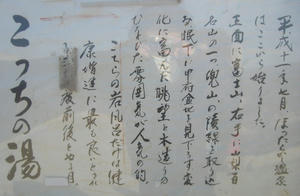 平成十一年七月 ほったらかし温泉
はここから始りました。
正面に富士山、右手に山梨百
名山の一つ兜山の稜線を取り込
み眼下に甲府盆地を見下ろす変
化に富んだ眺望と木造りの
ひなびた雰囲気が人気的。
こちらの岩風呂だけは健
康増進に最も良いとされ
度前後のぬる目
こっちの湯